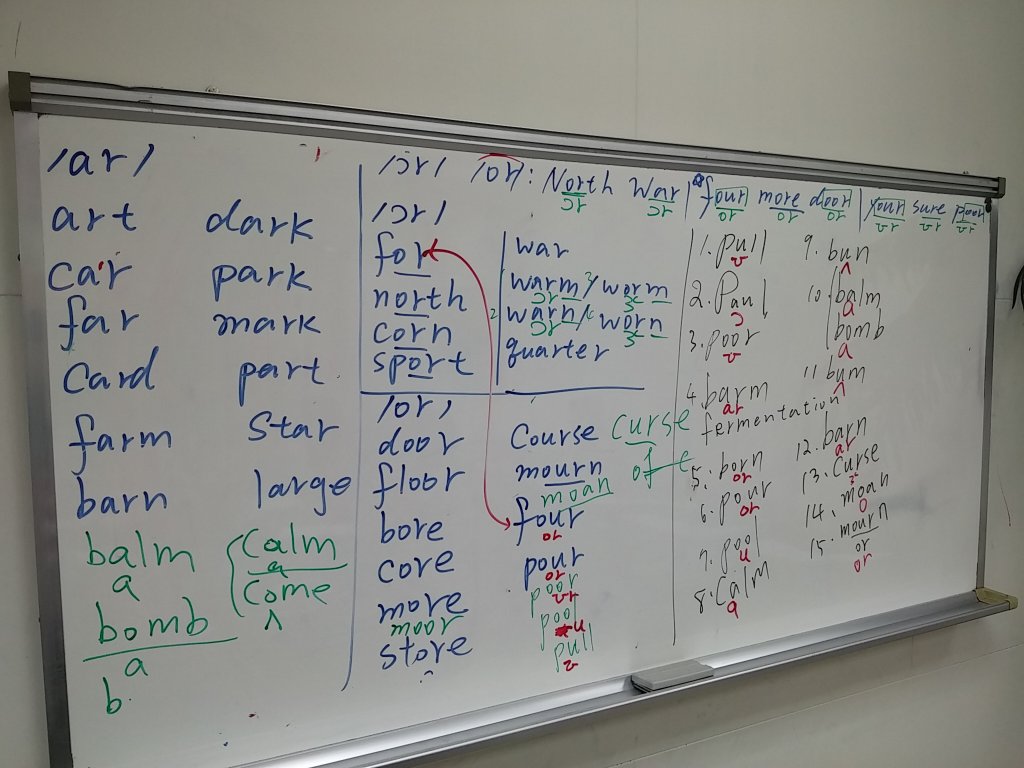 /ar/
art dark
car park
far mark
card part
farm star
barn large
balm
a
calm
a
come
ʌ
bomb
a
b
/ɔr/ /or/: North War four more door your sure poor
ɔr ɔr or or or ʊr ʊr ʊr
/ɔr/
for
north
corn
sport
war
warm / worm
ɔr ɜ
warn / worn
ɔr ɜ
quarter
/or/
door
floor
bore
core
more
moor
store
course curse
mourn of
moan
four
or
pour
or
poor
ʊr
pool
u
pull
ʊ
1. pull
ʊ
2. Paul
ɔ
3. poor
ʊ
4. barm
ar
fermentation
5. born
or
6. pour
or
7. pool
u
8. calm
a
9. bun
ʌ
10. balm
a
bomb
a
11. bum
ʌ
12. barn
ar
13. curse
14. moan
o
15. mourn
or
or